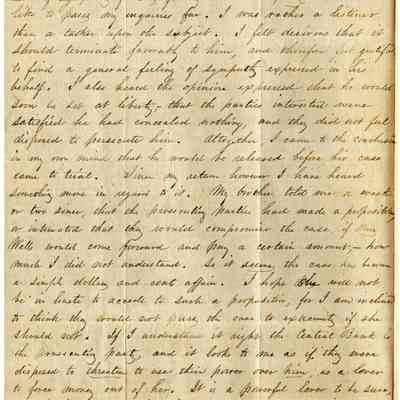 like to press my inquiries far. I was rather a listener
than a talker upon the subject. I felt desirous that it
should terminate favorably to him, and therefore was gratified
to find a general feeling of sympathy expressed in his
behalf. I also heard the opinion expressed that he would
soon be set at liberty — that the parties interested were
satisfied he had concealed nothing, and they did not feel
disposed to persecute him. Altogether I came to the conclusion
in my own mind that he would be released before his case
came to trial. Since my return however I have heard
something more in regard to it. My brother told me a week
or two since, that the prosecuting parties had made a proposition
or intimated that they would compromise the case if
Wells would come forward and pay a certain amount, — how
much I did not understand. So it seems the case has become
a simple dollar and cent affair. I hope will not
be in haste to accede to such a proposition, for I am inclined
to think they would not push the case to extremity if she
should not. If I understand it aright the Central Bank is
the prosecuting party, and it looks to me as if they were
disposed to threaten to use their power over him, as a lever
to force money out of her. It is a powerful lever to be sure,